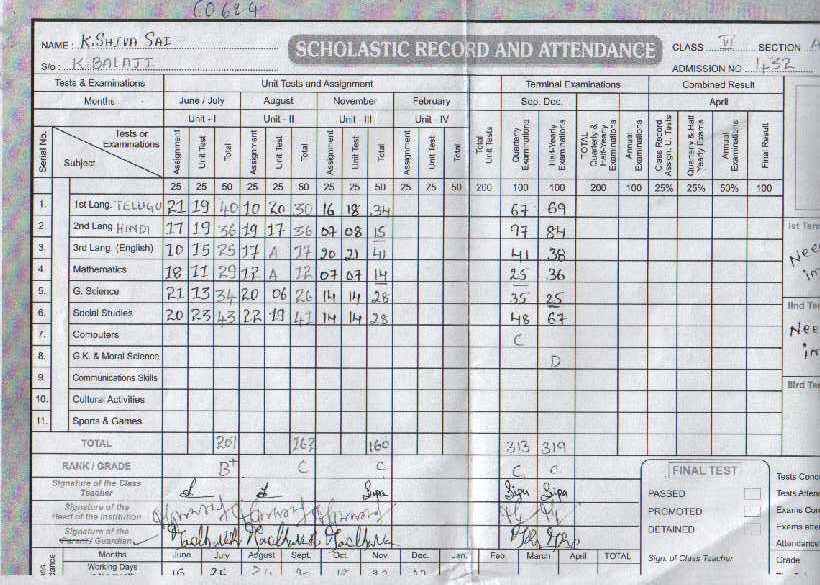 CO624
NAME : K.SHIVA SAI SCHOLASTIC RECORD AND ATTENDANCE CLASS VI SECTION
S/o : K.BALAJI ADMISSION NO. 1432
Tests & Examinations Unit Tests and Assignment Terminal Examinations Combined Result
Months June / July August November February Sep. Dec. April
Unit - I Unit - II Unit - III Unit - IV
Serial No. Tests or Examinations Subject Assignment Unit Test Total Assignment Unit Test Total Assignment Unit Test Total Assignment Unit Test Total Total Unit Tests Quarterly Examinations Half-Yearly Examinations TOTAL Quarterly & Half-Yearly Examinations Annual Examinations Class Record Assign. U. Tests Quarterly & Half Yearly Exams Annual Examinations Final Result
25 25 50 25 25 50 25 25 50 25 25 50 200 100 100 200 100 25% 25% 50% 100
1. 1st Lang. TELUGU 21 19 40 10 20 30 16 18 34 67 69
2. 2nd Lang HINDI 17 19 36 19 17 36 07 08 15 97 84
3. 3rd Lang. (English) 10 15 25 17 A 17 20 21 41 41 38
4. Mathematics 18 11 29 12 A 12 07 07 14 25 36
5. G. Science 21 13 34 20 06 26 14 14 28 35 25
6. Social Studies 20 23 43 22 19 41 14 14 28 48 67
7. Computers C
8. G.K. & Moral Science D
9. Communications Skills
10. Cultural Activities
11. Sports & Games
TOTAL 201 162 160 313 319
RANK / GRADE B+ C C C C
Signature of the Class Teacher
Signature of the Head of the Institution
Signature of the Parent / Guardian
Months June July August Sept. Oct. Nov. Dec. Jan. Feb. March April TOTAL
Working Days
FINAL TEST
PASSED
PROMOTED
DETAINED
Sign. of Class Teacher
1st Term
Need
IInd Term
Need
IIIrd Term
Tests Cond
Tests Atten
Exams Con
Exams atte
Attendance
Grade